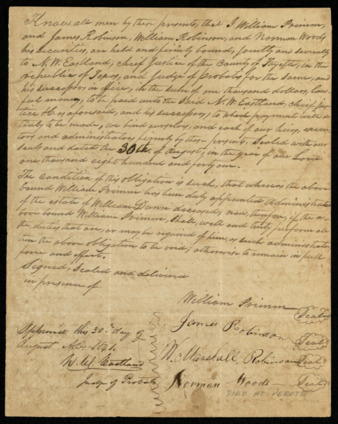 Know all men by these presents, that I William Primm,
and James Robinson, William Robinson, and Norman Woods
his securities, are held and firmly bound, jointly and severally
to N. W. Eastland, chief Justice of the County of Fayette, in the
republic of Texas, and Judge of probate for the same, and
his successors in office, in the sum of one thousand dollars, law-
ful money, to be paid unto the said N. W. Eastland, chief Jus-
tice as aforesaid, and his successors; to which payment well &
truly to be made, we bind ourselves, and each of our heirs, execu-
tors and administrators, firmly by these presents. Sealed with our
seals and dated this 30th of August, in the year of our Lord
one thousand eight hundred and forty one.
The condition of this obligation is such, that whereas the above
bound William Primm has been duly appointed Administrator
of the estate of William deceased, now, therefore, if the a-
bove bound William Primm, shall well and truly perform all
the duties that are, or may be required of him as such administrator
then the above obligation to be void, otherwise to remain in full
force and effect.
Signed, Sealed and delivered
in presence of
William Primm Seal
James Robinson Seal
W. Marshall Robinson Seal
Norman Woods Seal
DIED AT PEROTE
Approved this 30th day of
August A.D. 1841
N. W. Eastland
Judge of Probate